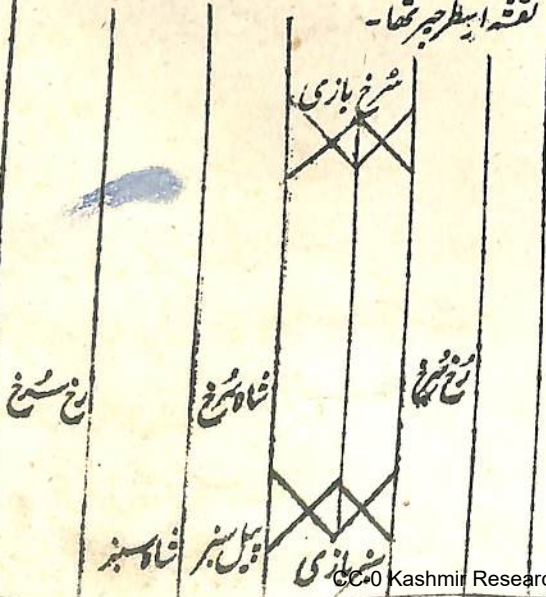 نقشہ اسطرحپر تھا۔
سُرخ بازی
رُخ سُرخ
شاہ سُرخ
رُخ سُرخ
سبز بازی
پیل سبز
شاہ سبز
CC-0 Kashmir Researc